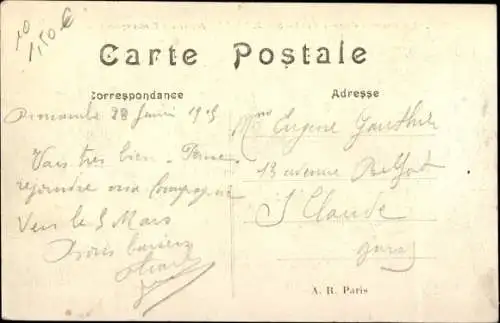 1,50 €
Carte Postale
Correspondance
Adresse
28 1915
Vais très bien - Pense
rejoindre ma Compagnie
Vers le 5 Mars
Bons baisers
Mme Eugene Gauthier
13 avenue Belfort
St Claude
Jura
A. R. Paris